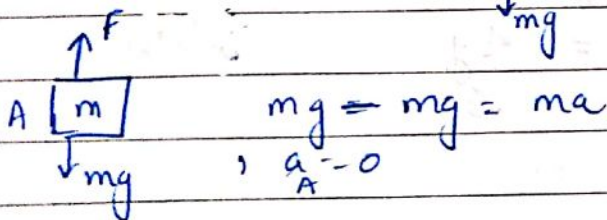 mg
F
A m mg - mg = ma
mg , a_A = 0